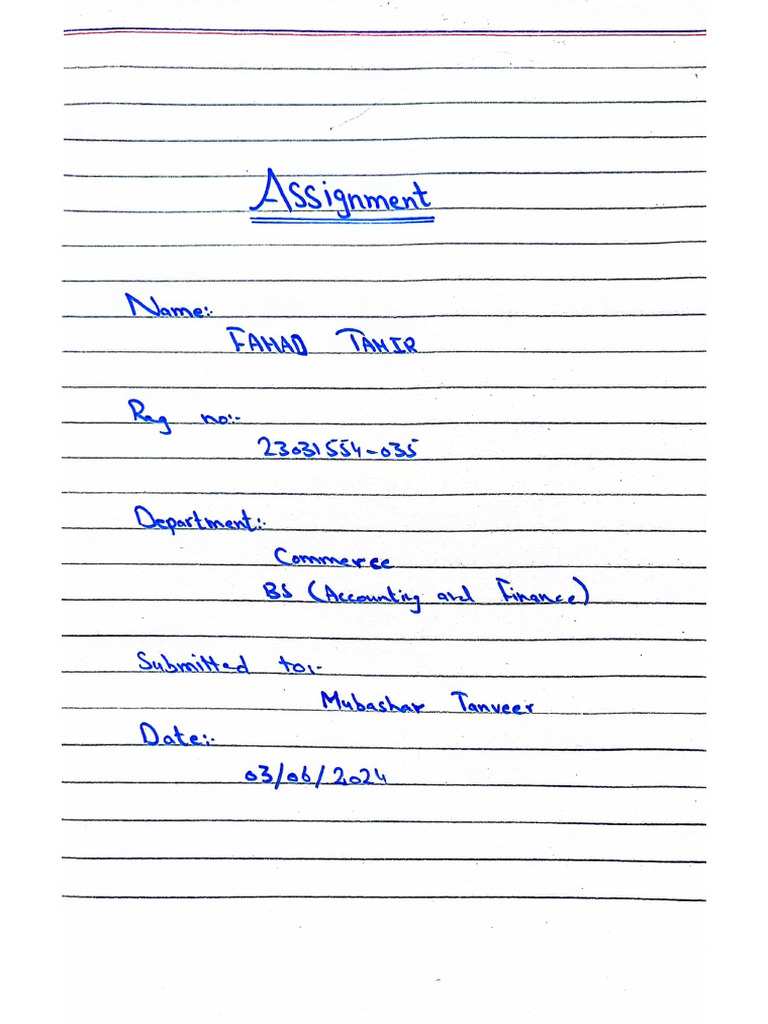 Assignment
Name:-
FAHAD TAHIR
Reg no:-
23031554-035
Department:-
Commerce
BS (Accounting and Finance)
Submitted to:-
Mubashar Tanveer
Date:-
03/06/2024